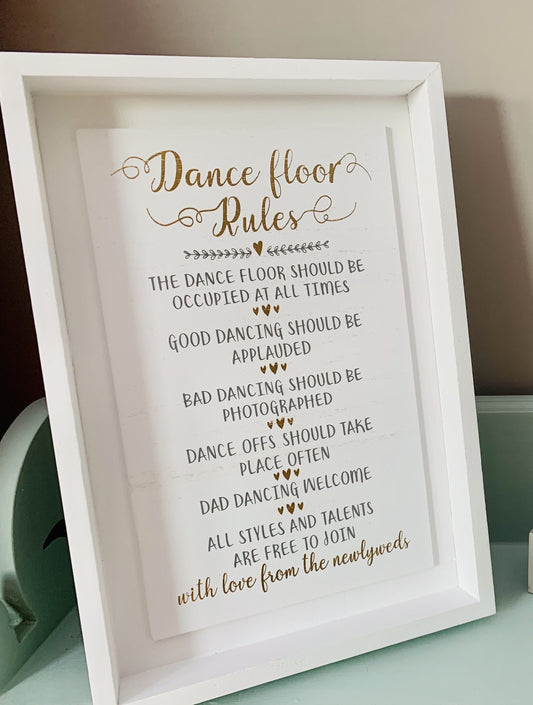 Dance floor
Rules
THE DANCE FLOOR SHOULD BE
OCCUPIED AT ALL TIMES
GOOD DANCING SHOULD BE
APPLAUDED
BAD DANCING SHOULD BE
PHOTOGRAPHED
DANCE OFFS SHOULD TAKE
PLACE OFTEN
DAD DANCING WELCOME
ALL STYLES AND TALENTS
ARE FREE TO JOIN
with love from the newlyweds